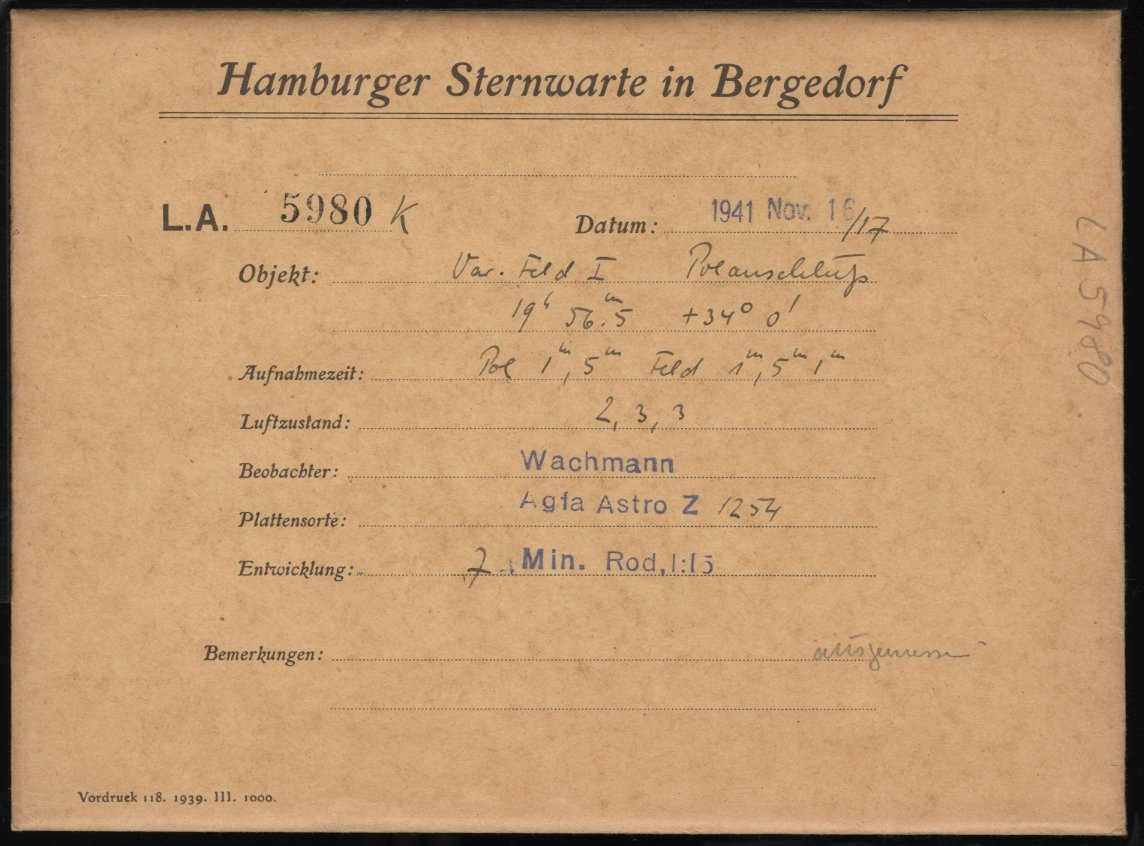 Hamburger Sternwarte in Bergedorf
L.A. 5980 K Datum: 1941 Nov. 16/17
Objekt: Var. Feld I Polanschluß
19ʰ 56ᵐ.5 +34° 0'
Aufnahmezeit: Pol 1ᵐ, 5ᵐ Feld 1ᵐ, 5ᵐ 1ᵐ
Luftzustand: 2, 3, 3
Beobachter: Wachmann
Plattensorte: Agfa Astro Z 1254
Entwicklung: 7 Min. Rod. 1:15
Bemerkungen: ausgemessen
Vordruck 118. 1939. III. 1000.
LA 5980